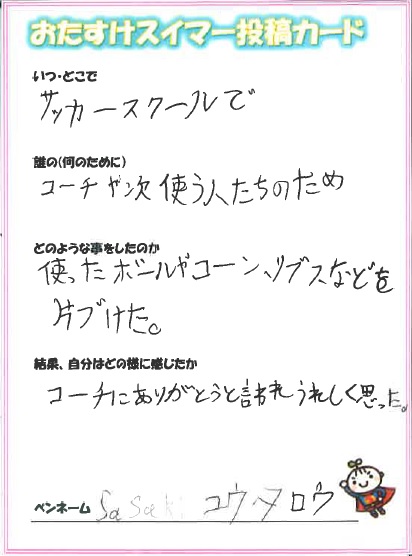 おたすけスイマー投稿カード
いつ・どこで
サッカースクールで
誰の(何のために)
コーチや次使う人たちのため
どのような事をしたのか
使ったボールやコーン、リブスなどを
片づけた。
結果、自分はどの様に感じたか
コーチにありがとうと言われうれしく思った。
ペンネーム Sasaki コウタロウ